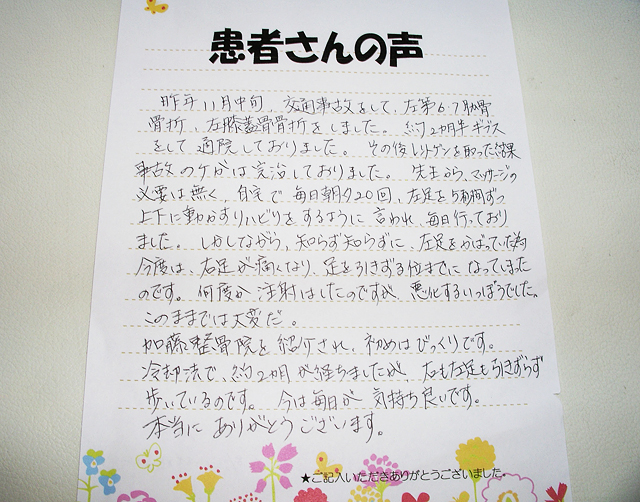 患者さんの声
昨年11月中旬、交通事故をして、左第6.7肋骨
骨折、左膝蓋骨骨折をしました。約2ヵ月半ギプス
をして通院しておりました。その後レントゲンを取った結果
事故のケガは完治しておりました。先生から、マッサージの
必要は無く、自宅で毎日朝夕20回、左足を5秒間ずつ
上下に動かすリハビリをするように言われ、毎日行っており
ました。しかしながら、知らず知らずに、左足をかばっていた為
今度は、右足が痛くなり、足を引きずる位までになっていました
のです。何度か注射はしたのですが、悪化するいっぽうでした。
このままでは大変だ。
加藤整骨院を紹介され、初めはびっくりです。
冷却法で、約2ヵ月が経ちましたが、右も左足も引きずらず
歩いているのです。今は毎日が気持ち良いです。
本当にありがとうございます。
★ご記入いただきありがとうございました